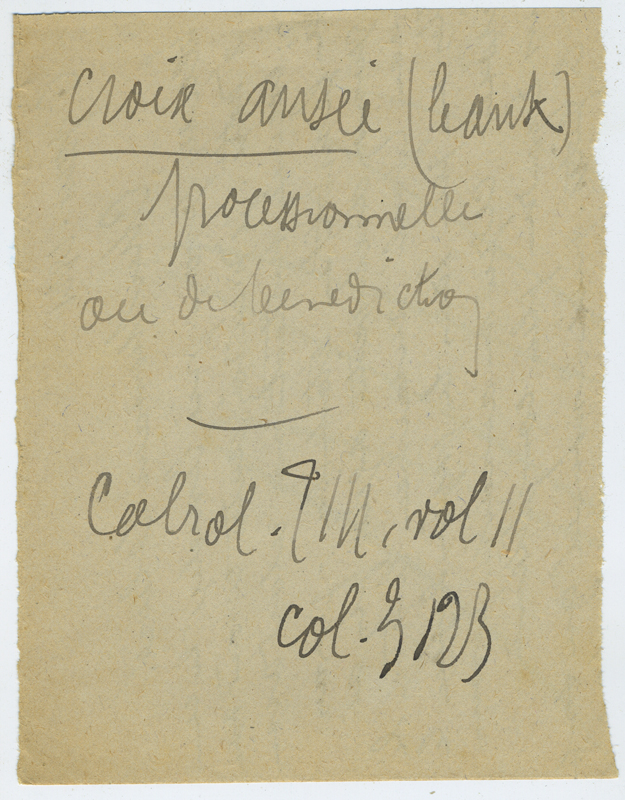 croix ansée (hank)
processionnelle
ou de benediction
Cabrol. T III, vol II
col. 3123